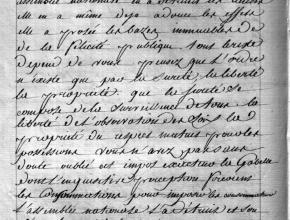 elle en a même dejà adouci les effets
elle a posée les bazes immuables de
de la félicité publique tous brexe
depend de vous prouvez que l'ordre
n'existe que par la sureté, la liberté
la propriété que la sureté se
compose de la surveillance de tous la
liberté de l'observation des Loix la
propriété du respect mutuel pour les
possessions vous n'avez pas sans
doute oublié cet impot excessif la gabelle
dont l'inquisitive perception forçoit
les consommations pour imposer les consommateurs
l'assemblée nationale l'a détruit et son